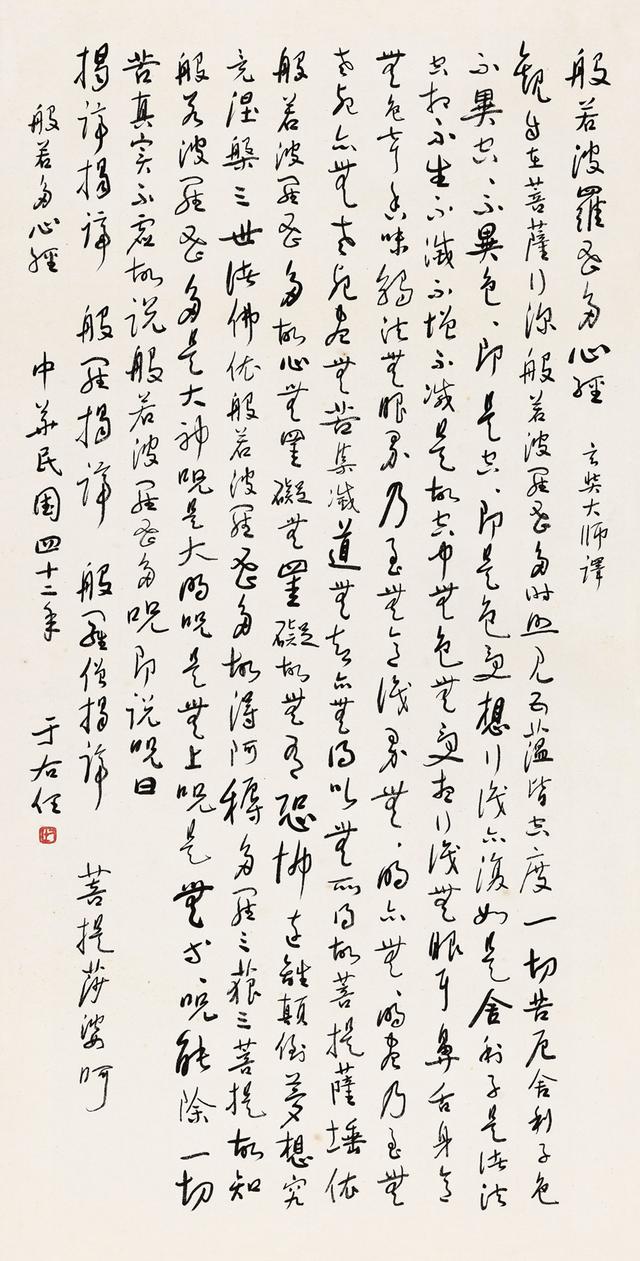 般若波羅蜜多心經 玄奘大師譯
觀自在菩薩行深般若波羅蜜多時照見五蘊皆空度一切苦厄舍利子色
不異空、不異色、即是空、即是色受想行識亦復如是舍利子是諸法
空相不生不滅不增不減是故空中無色無受想行識無眼耳鼻舌身意
無色聲香味觸法無眼界乃至無意識界無、明亦無、明盡乃至無
老死亦無老死盡無苦集滅道無智亦無得以無所得故菩提薩埵依
般若波羅蜜多故心無罣礙無罣礙故無有恐怖遠離顛倒夢想究
竟涅槃三世諸佛依般若波羅蜜多故得阿耨多羅三藐三菩提故知
般若波羅蜜多是大神咒是大明咒是無上咒是無等、咒能除一切
苦真實不虛故說般若波羅蜜多咒即說咒曰
揭諦揭諦 般羅揭諦 般羅僧揭諦 菩提莎婆呵
般若多心經 中華民國四十二年 于右任